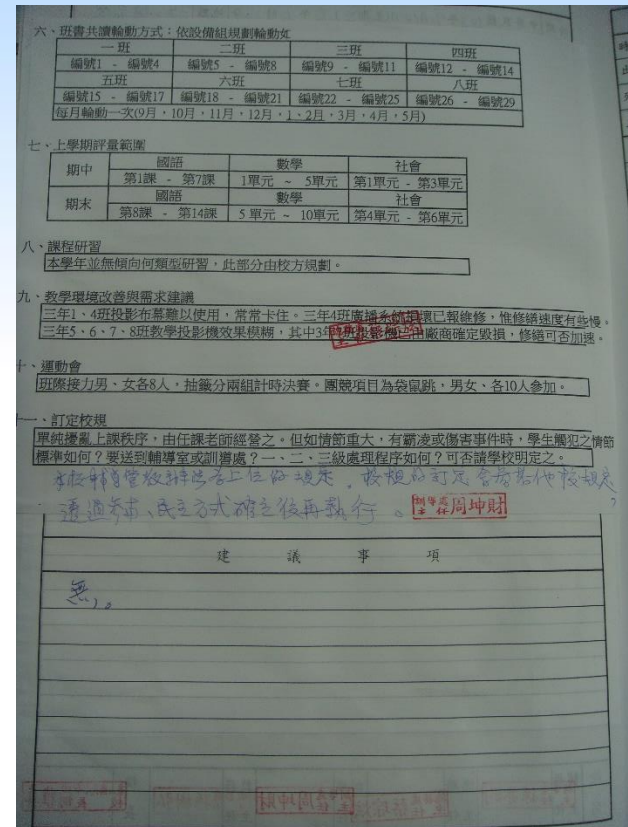 六、班書共讀輪動方式：依設備組規劃輪動如
一班 二班 三班 四班
編號1 - 編號4 編號5 - 編號8 編號9 - 編號11 編號12 - 編號14
五班 六班 七班 八班
編號15 - 編號17 編號18 - 編號21 編號22 - 編號25 編號26 - 編號29
每月輪動一次(9月，10月，11月，12月，1、2月，3月，4月，5月)
七、上學期評量範圍
期中 國語 數學 社會
第1課 - 第7課 1單元 ~ 5單元 第1單元 - 第3單元
期末 國語 數學 社會
第8課 - 第14課 5單元 ~ 10單元 第4單元 - 第6單元
八、課程研習
本學年並無傾向何類型研習，此部分由校方規劃。
九、教學環境改善與需求建議
三年1、4班投影布幕難以使用，常常卡住。三年4班廣播系統損壞已報維修，惟修繕速度有些慢。
三年5、6、7、8班教學投影機效果模糊，其中3年 班投影機已由廠商確定毀損，修繕可否加速。
十、運動會
班際接力男、女各8人，抽籤分兩組計時決賽。團競項目為袋鼠跳，男女、各10人參加。
一、訂定校規
單純擾亂上課秩序，由任課老師經營之。但如情節重大，有霸凌或傷害事件時，學生觸犯之情節
標準如何？要送到輔導室或訓導處？一、二、三級處理程序如何？可否請學校明定之。
本校輔導管教辦法為上位的規定，校規的訂定會參考他校規定，
透過 民主方式確立後再執行。
周坤財
建議事項
無。
周坤財